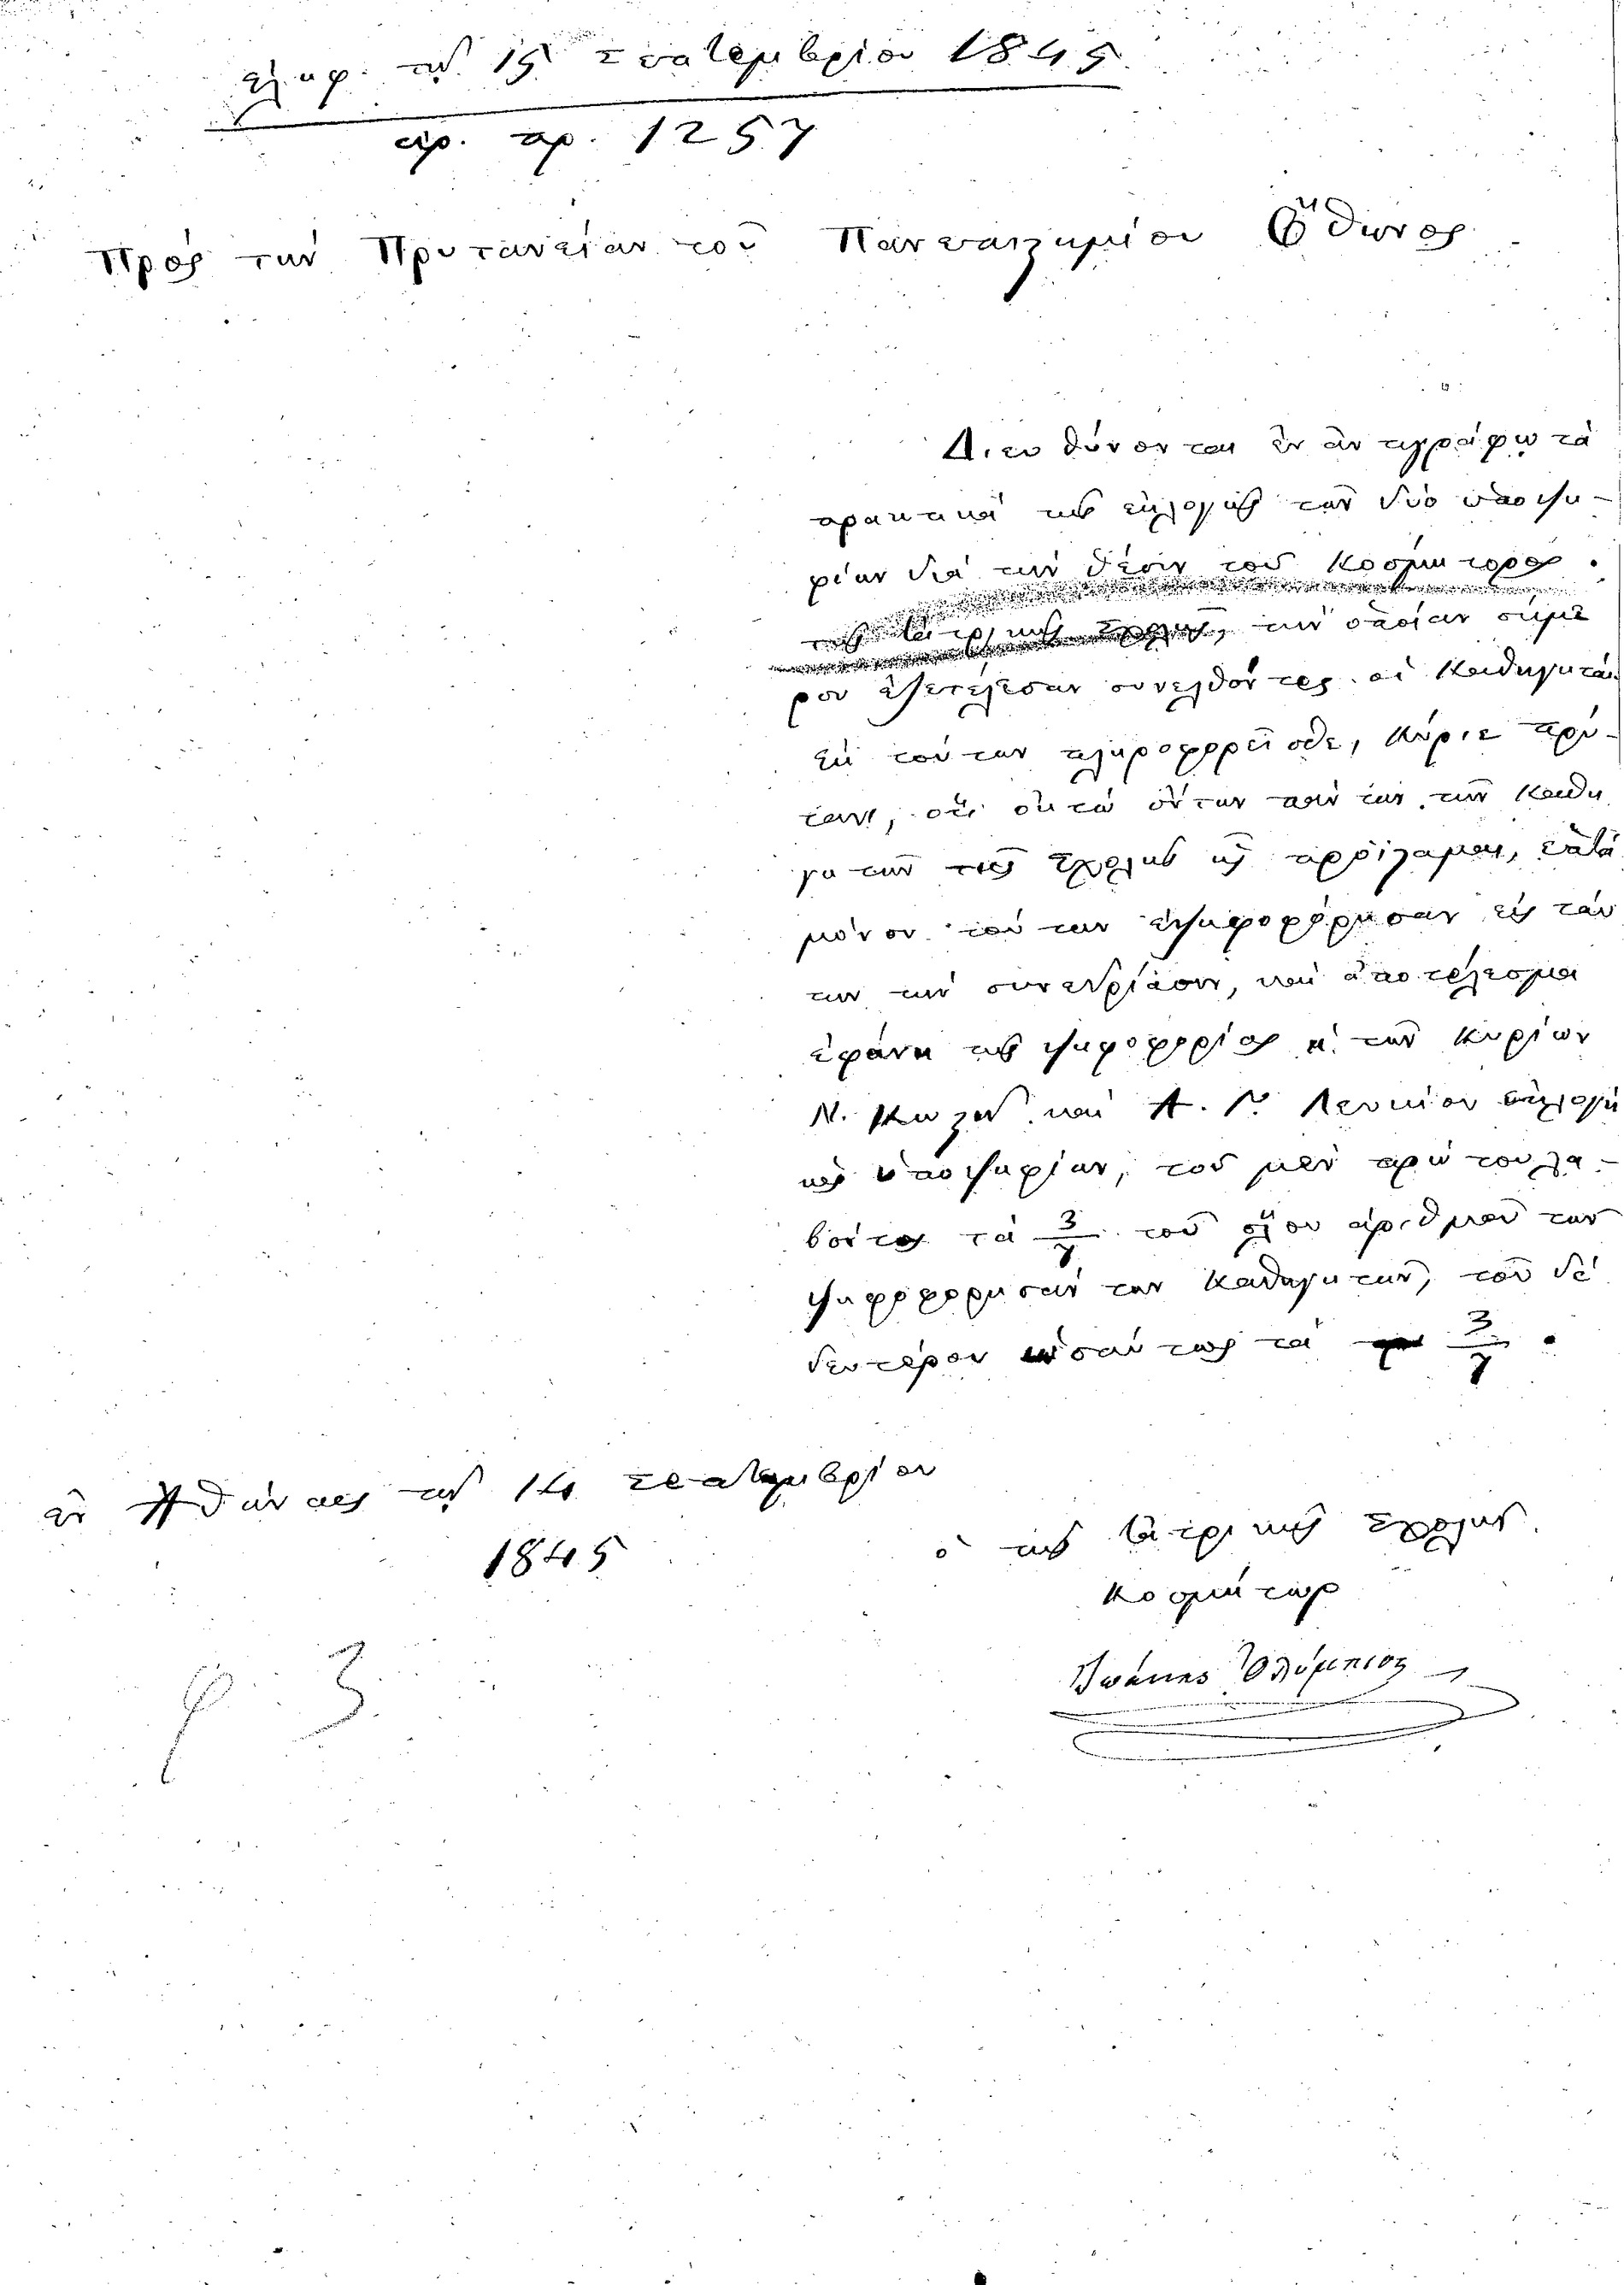 ἐλήφ. τῇ 15 Σεπτεμβρίου 1845
ἀρ. πρ. 1257
Πρὸς τὴν Πρυτανείαν τοῦ Πανεπιστημίου Ὄθωνος
Διευθύνονται ἐν ἀντιγράφῳ τὰ
πρακτικὰ τῆς ἐκλογῆς τῶν δύο ὑποψη-
φίων διὰ τὴν θέσιν τοῦ Κοσμήτορος
τῆς Ἰατρικῆς Σχολῆς, τὴν ὁποίαν σήμε
ρον ἐξετέλεσαν συνελθόντες οἱ Καθηγηταί.
Ἐκ τούτων πληροφορεῖσθε, Κύριε πρύ-
τανι, ὅτι ὀκτὼ ὄντων πάντων τῶν Καθη
γητῶν τῆς Σχολῆς ἧς προΐσταμαι, ἑπτὰ
μόνον τούτων ἐψηφοφόρησαν εἰς ταύ
την τὴν συνεδρίασιν, καὶ ἀποτέλεσμα
ἐφάνη τῆς ψηφοφορίας ἡ τῶν Κυρίων
Ν. Κωστῆ καὶ Α. Γ. Λευκίου ἐκλογὴ
ὡς ὑποψηφίων, τοῦ μὲν πρώτου λα-
βόντος τὰ 3/7 τοῦ ὅλου ἀριθμοῦ τῶν
ψηφοφορησάντων Καθηγητῶν, τοῦ δὲ
δευτέρου ὡσαύτως τὰ 3/7.
ἐν Ἀθήναις τῇ 14 Σεπτεμβρίου
1845
ὁ τῆς Ἰατρικῆς Σχολῆς
Κοσμήτωρ
Ἰωάννης Ὀλύμπιος
φ 3